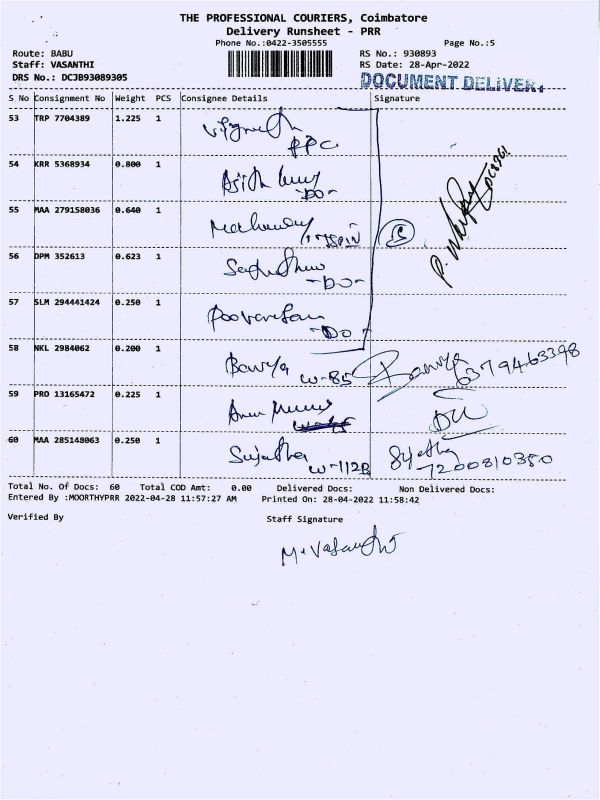 THE PROFESSIONAL COURIERS, Coimbatore
Delivery Runsheet - PRR
Phone No.:0422-3505555 Page No.:5
Route: BABU RS No.: 930893
Staff: VASANTHI RS Date: 28-Apr-2022
DRS No.: DCJB93089305 DOCUMENT DELIVER
S No Consignment No Weight PCS Consignee Details Signature
53 TRP 7704389 1.225 1 Vignesh
PPC
54 KRR 5368934 0.800 1
-DO-
55 MAA 279158036 0.640 1
56 DPM 352613 0.623 1
-DO-
57 SLM 294441424 0.250 1
-DO-
58 NKL 2984062 0.200 1 Bavya W-85 Bavya
59 PRO 13165472 0.225 1 Arun
60 MAA 285148063 0.250 1 Sujatha W-112B Sujatha
7200810350
Total No. Of Docs: 60 Total COD Amt: 0.00 Delivered Docs: Non Delivered Docs:
Entered By :MOORTHYPRR 2022-04-28 11:57:27 AM Printed On: 28-04-2022 11:58:42
Verified By Staff Signature
M. Vasanthi